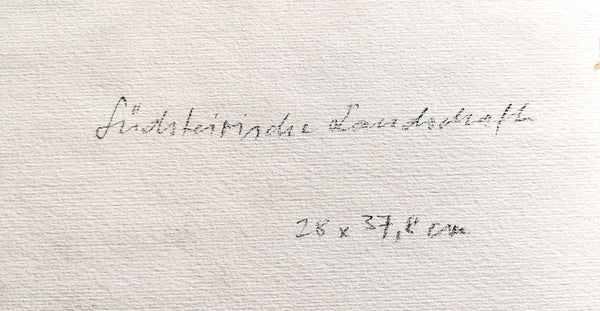 Südsteirische Landschaft
28 x 37,8 cm